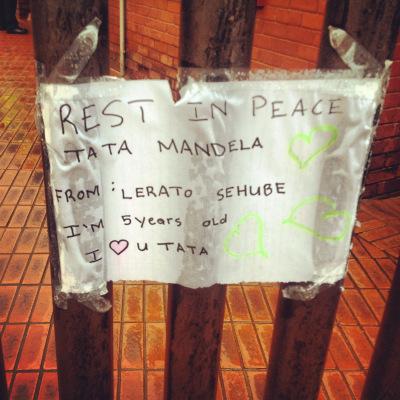 REST IN PEACE
TATA MANDELA
FROM: LERATO SEHUBE
I'M 5 years old
I ♡ U TATA